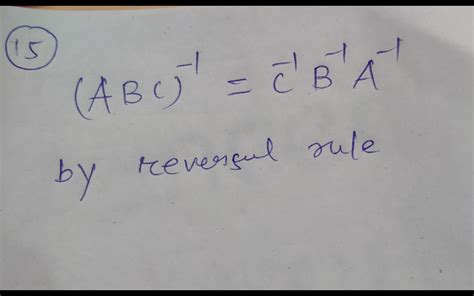 15
(ABC)⁻¹ = C⁻¹ B⁻¹ A⁻¹
by reversal rule